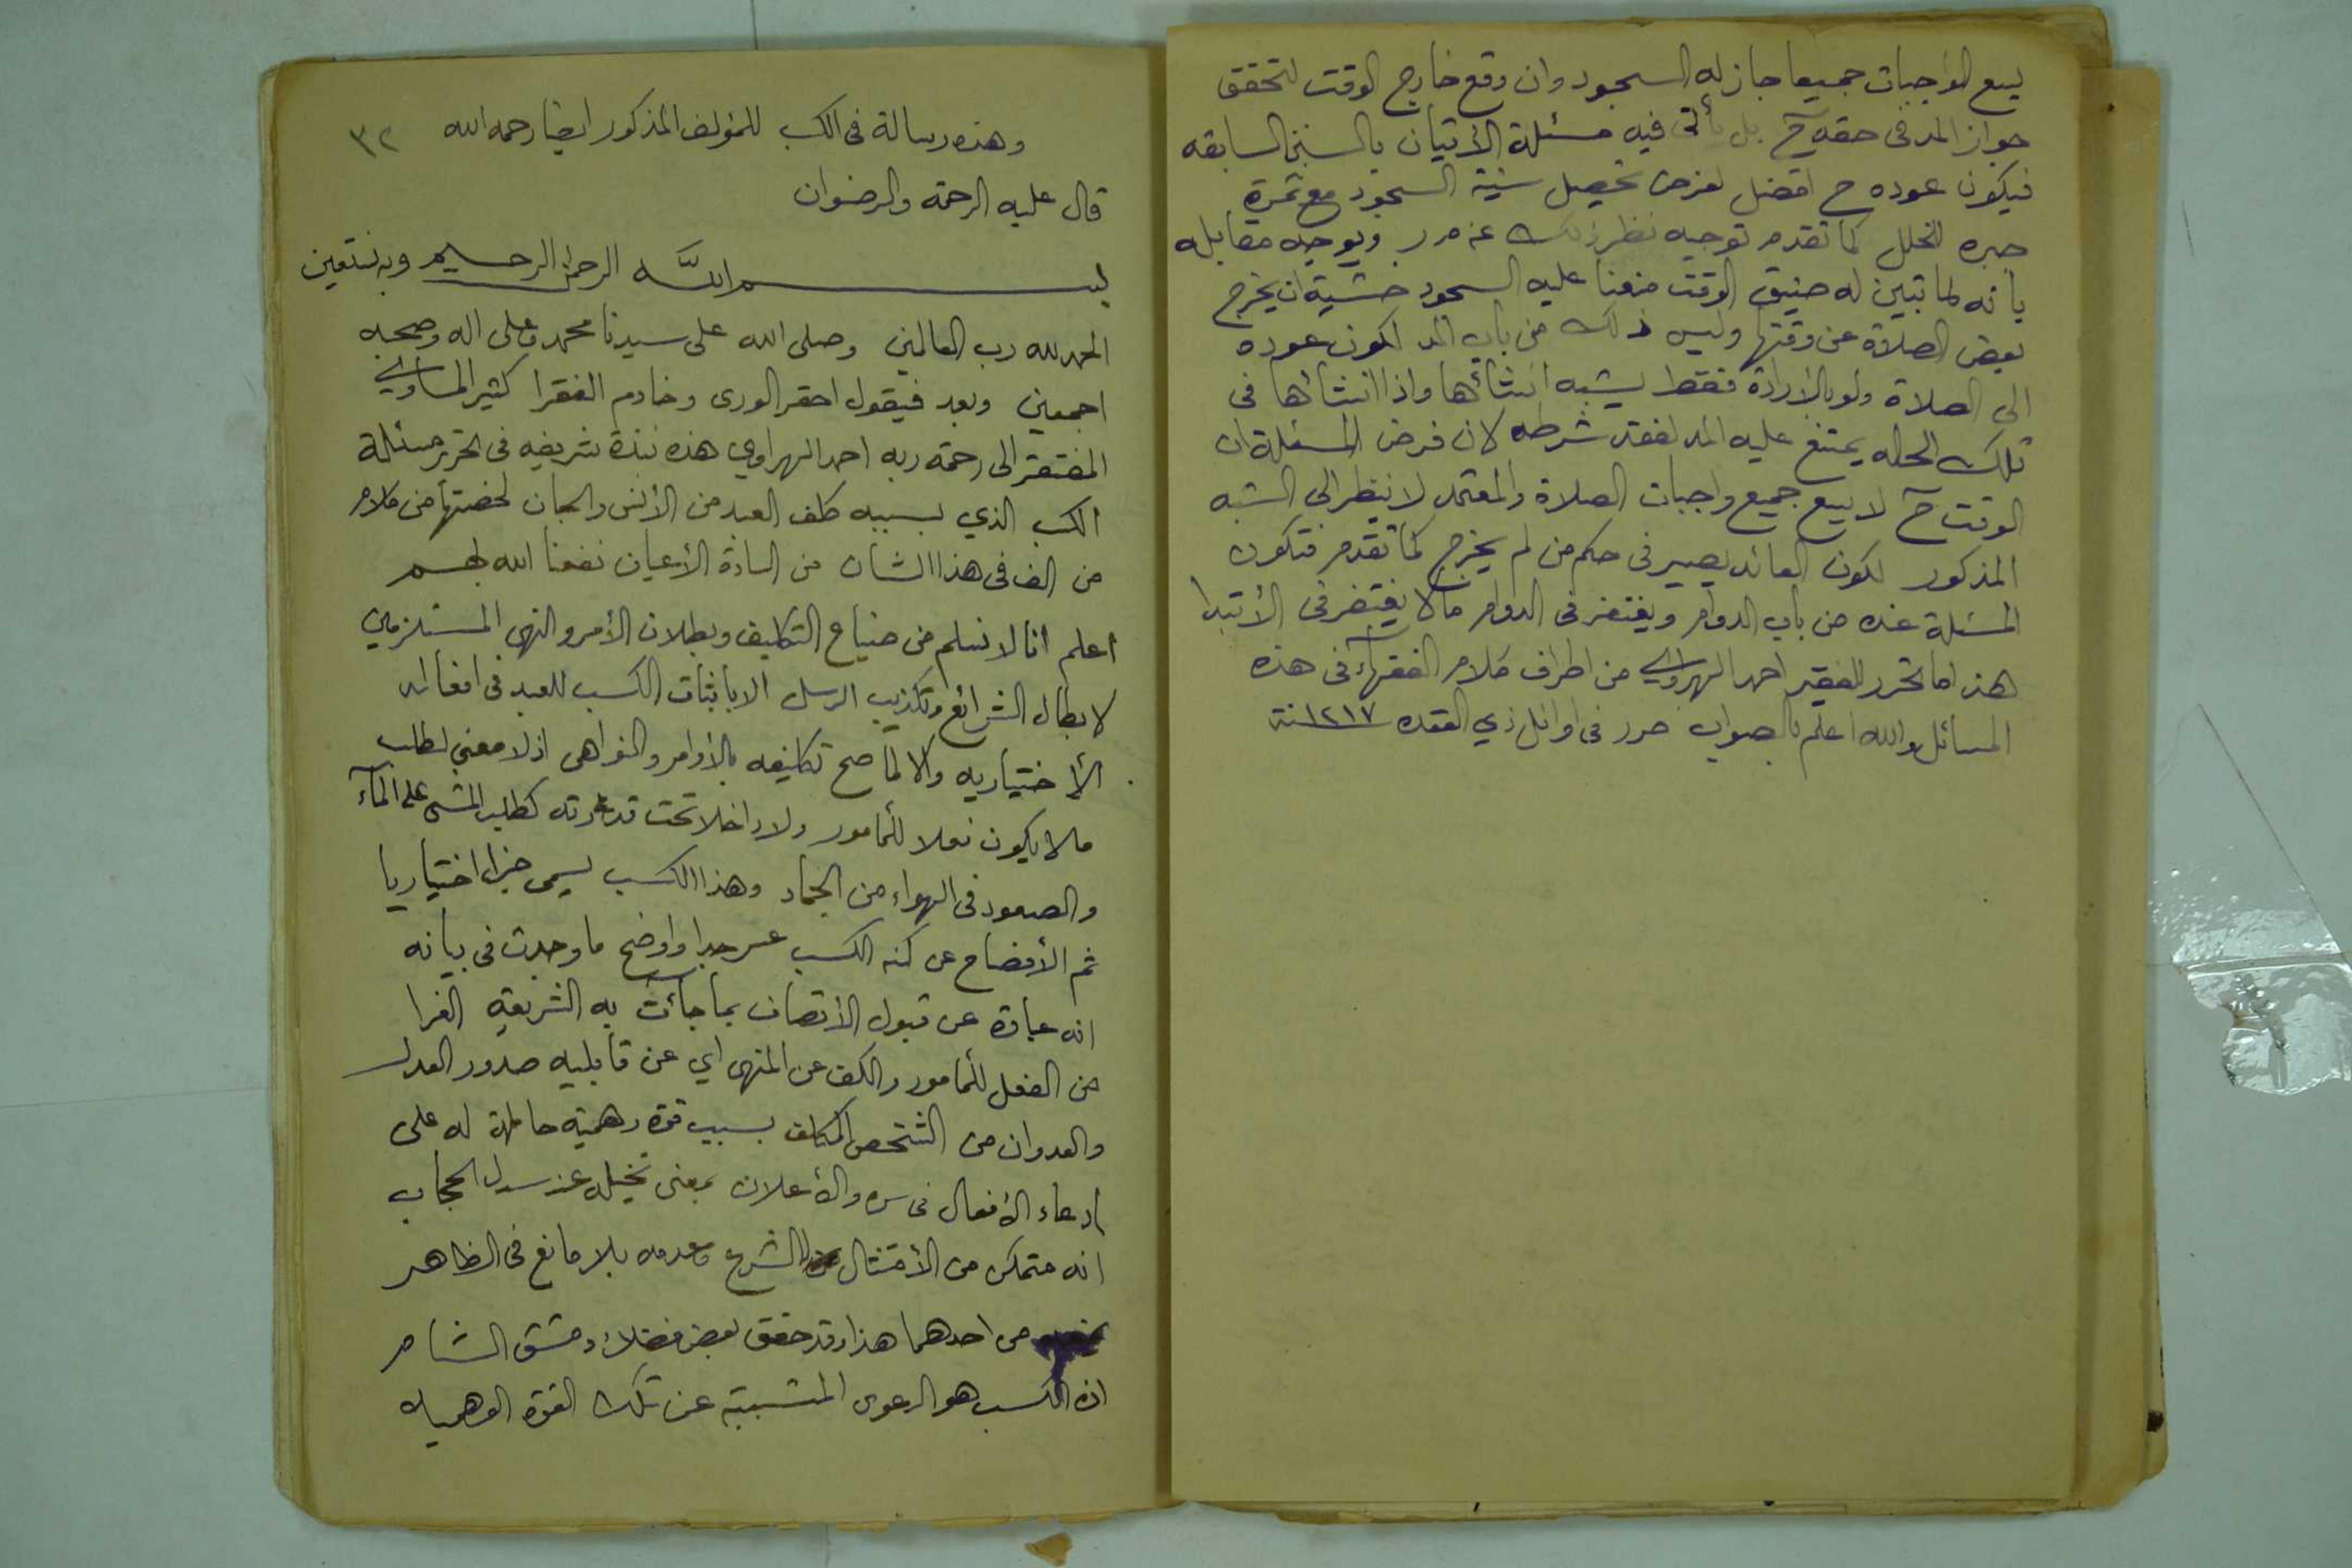 يسع الواجبات جميعا جاز له السجود وان وقع خارج الوقت لتحقق
جواز المد في حقه ح بل يأتى فيه مسئلة الأتيان بالسنن السابقه
فيكون عوده ح افضل لغرض تحصيل سنية السجود مع ثمرة
جبره للخلل كما تقدم توجيه نظير ذلك عن م ر ويوجيه مقابله
بانه لما تبين له ضيق الوقت منعنا عليه السجود خشية ان يخرج
بعض الصلاة عن وقتها وليس ذلك من باب المد لكون عوده
الى الصلاة ولو بالارادة فقط يشبه انشأئها واذا انشأها في
تلك الحاله يمتنع عليه المد لفقد شرطه لان فرض المسئلة ان
الوقت ح لا يسع جميع واجبات الصلاة والمعتمد لا ينظر الى الشبه
المذكور لكون العائد يصير في حكم من لم يخرج كما تقدم فتكون
المسئلة عنده من باب الدوام ويغتفر في الدوام مالا يغتفر في الأبتدا
هذا ما تحرر للفقير احمد الهراوي من اطراف كلام الفقهاء في هذه
المسائل والله اعلم بالصواب حرر في اوائل ذي القعده ١٢١٧سنة
وهذه رسالة في الكسب للمؤلف المذكور ايضا رحمه الله ٣٢
قال عليه الرحمة والرضوان
بسم الله الرحمن الرحيم وبه نستعين
الحمد لله رب العالمين وصلى الله على سيدنا محمد وعلى اله وصحبه
اجمعين وبعد فيقول احقر الورى وخادم الفقرا كثير المساوي
المفتقر الى رحمة ربه احمد الهراوي هذه نبذة شريفه في تحرير مسئلة
الكسب الذي بسببه كلف العبد من الأنس والجان لخصتها من كلام
من الف في هذا الشان من السادة الأعيان نفعنا الله بهم
أعلم انا لا نسلم من ضياع التكليف وبطلان الأمر والنهى المستلزمين
لابطال الشرائع وتكذيب الرسل الا باثبات الكسب للعبد في افعاله
الأختياريه والا لما صح تكليفه بالأوامر والنواهى اذ لا معني لطلب
مالا يكون فعلا للمأمور ولا داخلا تحت قدرته كطلب المشى على المآء
والصعود في الهواء من الجماد وهذا الكسب يسمى جزأ اختياريا
ثم الأفضاح عن كنه الكسب عسر جدا واوضح ما وجدت في بيانه
انه عبارة عن قبول الأتصاف بما جأت به الشريعة الغرا
من الفعل للمأمور والكف عن المنهى اي عن قابليه صدور العدل
والعدوان من الشخص المكلف بسبب قوة وهمية حاملة له على
ادعاء الأفعال في سره والأعلان بمعنى تخيله عند سدل الحجاب
انه متمكن من الأمتثال الشرع وعدمه بلا مانع في الظاهر
من احدهما هذا وقد حقق بعض فضلاء دمشق الشام
ان الكسب هو الدعوى المتسببة عن تلك القوة الوهميه